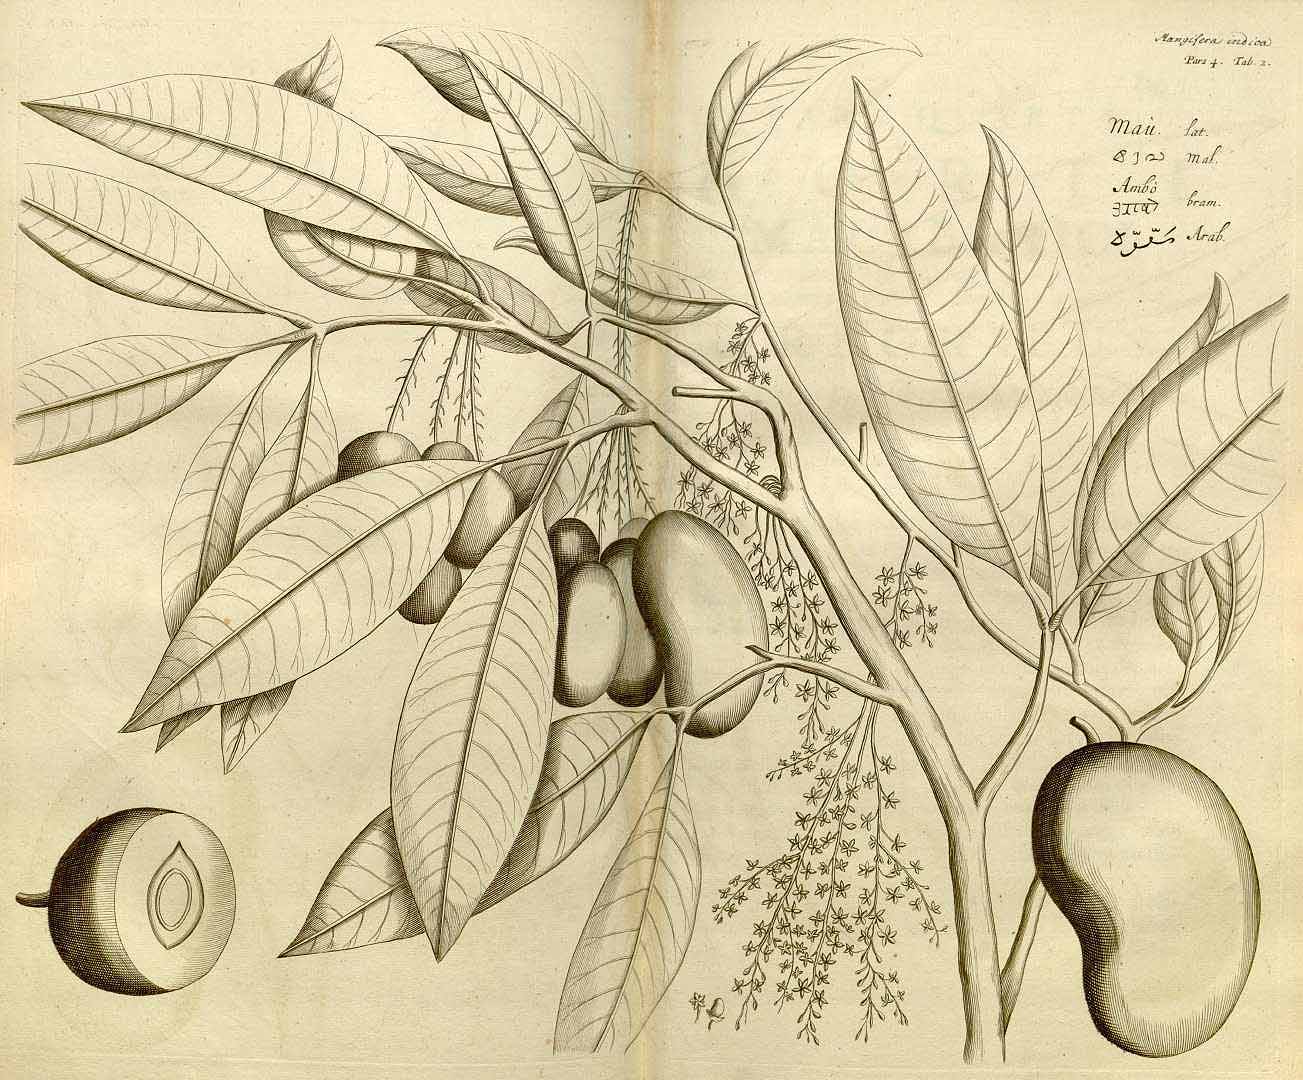 Mangifera indica
Pars 4. Tab. 2.
Maù. lat.
മാവ mal.
Ambò
bram.
Arab.